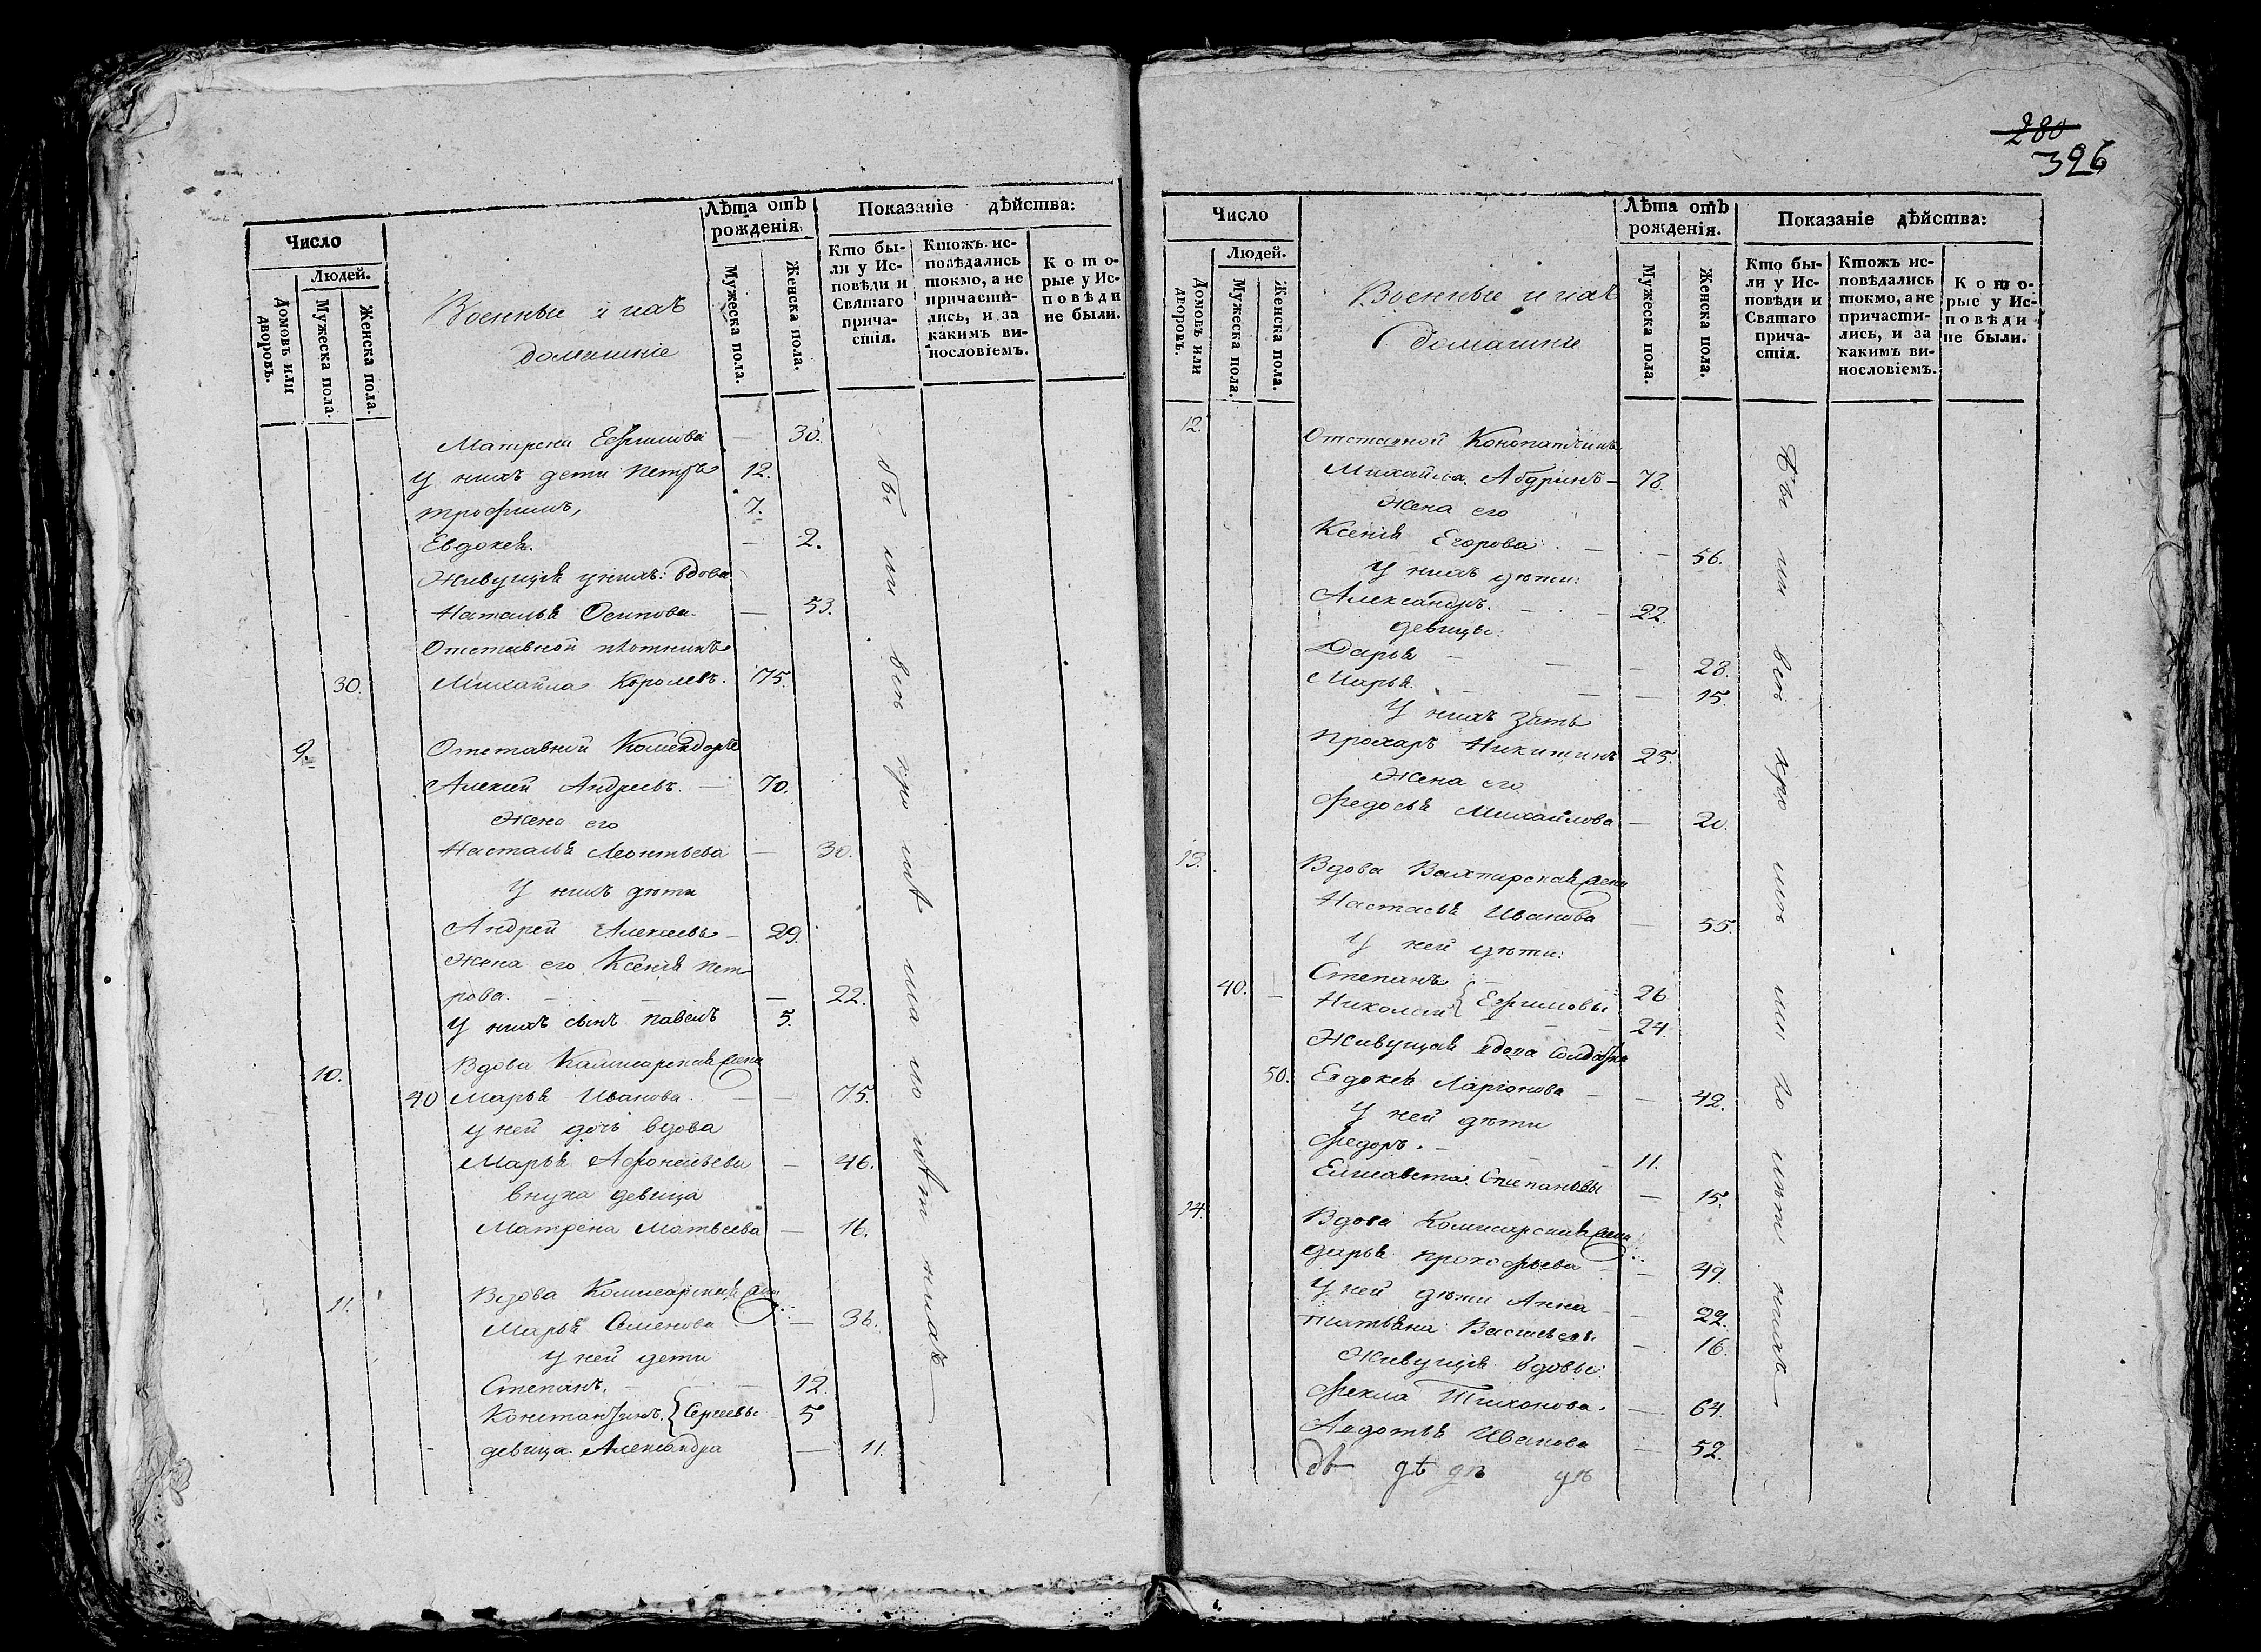 Число
Людей.
Домовъ или дворовъ.
Мужеска пола.
Женска пола.
Военные и ихъ
домашніе
Лѣта отъ рожденія.
Мужеска пола.
Женска пола.
Показаніе дѣйства:
Кто бы-
ли у Ис-
повѣди и
Святаго
прича-
стія.
Ктожъ ис-
повѣдались
токмо, а не
причасти-
лись, и за
какимъ ви-
нословіемъ.
К о т о-
рые у Ис-
п о в ѣ д и
не были.
Матрена Ефимова — 30.
У нихъ дети Петръ 12.
Трофимъ, 7.
Евдокея. — 2.
Живущія у нихъ: вдова
Наталья Осипова — 53.
Отставной плотникъ
30. Михайла Королевъ. 75.
9. Отставной Комендоръ
Алексей Андреевъ. — 70.
Жена его
Настасья Леонтьева — 30.
У нихъ дѣти
Андрей Алексеевъ — 29.
Жена его Ксенія Пет
рова. — — — 22.
У нихъ сынъ Павелъ 5.
10. Вдова Камисарская жена
40 Марья Иванова. — — 75.
у ней дочь вдова
Марья Афонасьева — 46.
внука девица
Матрена Матвеева — 16.
11. Вдова Комисарская жена
Марья Семенова — 36.
У ней дети
Степанъ. — — 12.
Константинъ. { Сергеевы 5
девица Александра — 11.
были всѣ кро мѣ ма ло лѣт нихъ
280
326
Число
Людей.
Домовъ или дворовъ.
Мужеска пола.
Женска пола.
Военные и ихъ
домашніе
Лѣта отъ рожденія.
Мужеска пола.
Женска пола.
Показаніе дѣйства:
Кто бы-
ли у Ис-
повѣди и
Святаго
прича-
стія.
Ктожъ ис-
повѣдались
токмо, а не
причасти-
лись, и за
какимъ ви-
нословіемъ.
К о т о-
рые у Ис-
п о в ѣ д и
не были.
12. Отставной Конопатчикъ
Михайла — 78.
Жена его
Ксенія Егорова — — 56.
У нихъ дѣти:
Александръ. — — 22.
девицы:
Дарья — — — 28.
Марья. — — — 15.
У нихъ зять
Прохаръ Никитинъ 25.
Жена его
Федосья Михайлова — 20.
13. Вдова Вахтарская жена
Настасья Иванова — 55.
У ней дѣти:
40. — Степанъ — 26
Николай { Ефимовы — 24.
Живущая вдова Солдатка
50. Евдокея Ларіонова — — 42.
У ней дѣти
Федоръ. — — 11.
Елисавета Степановы — 15.
14. Вдова Комисарская жена
Дарья Прокофьева — — 49.
У ней дѣти Анна — 22.
Татьяна Васильевы — 16.
Живущія вдовы:
Фекла Тихонова. — 64.
Авдотья Иванова — 52.